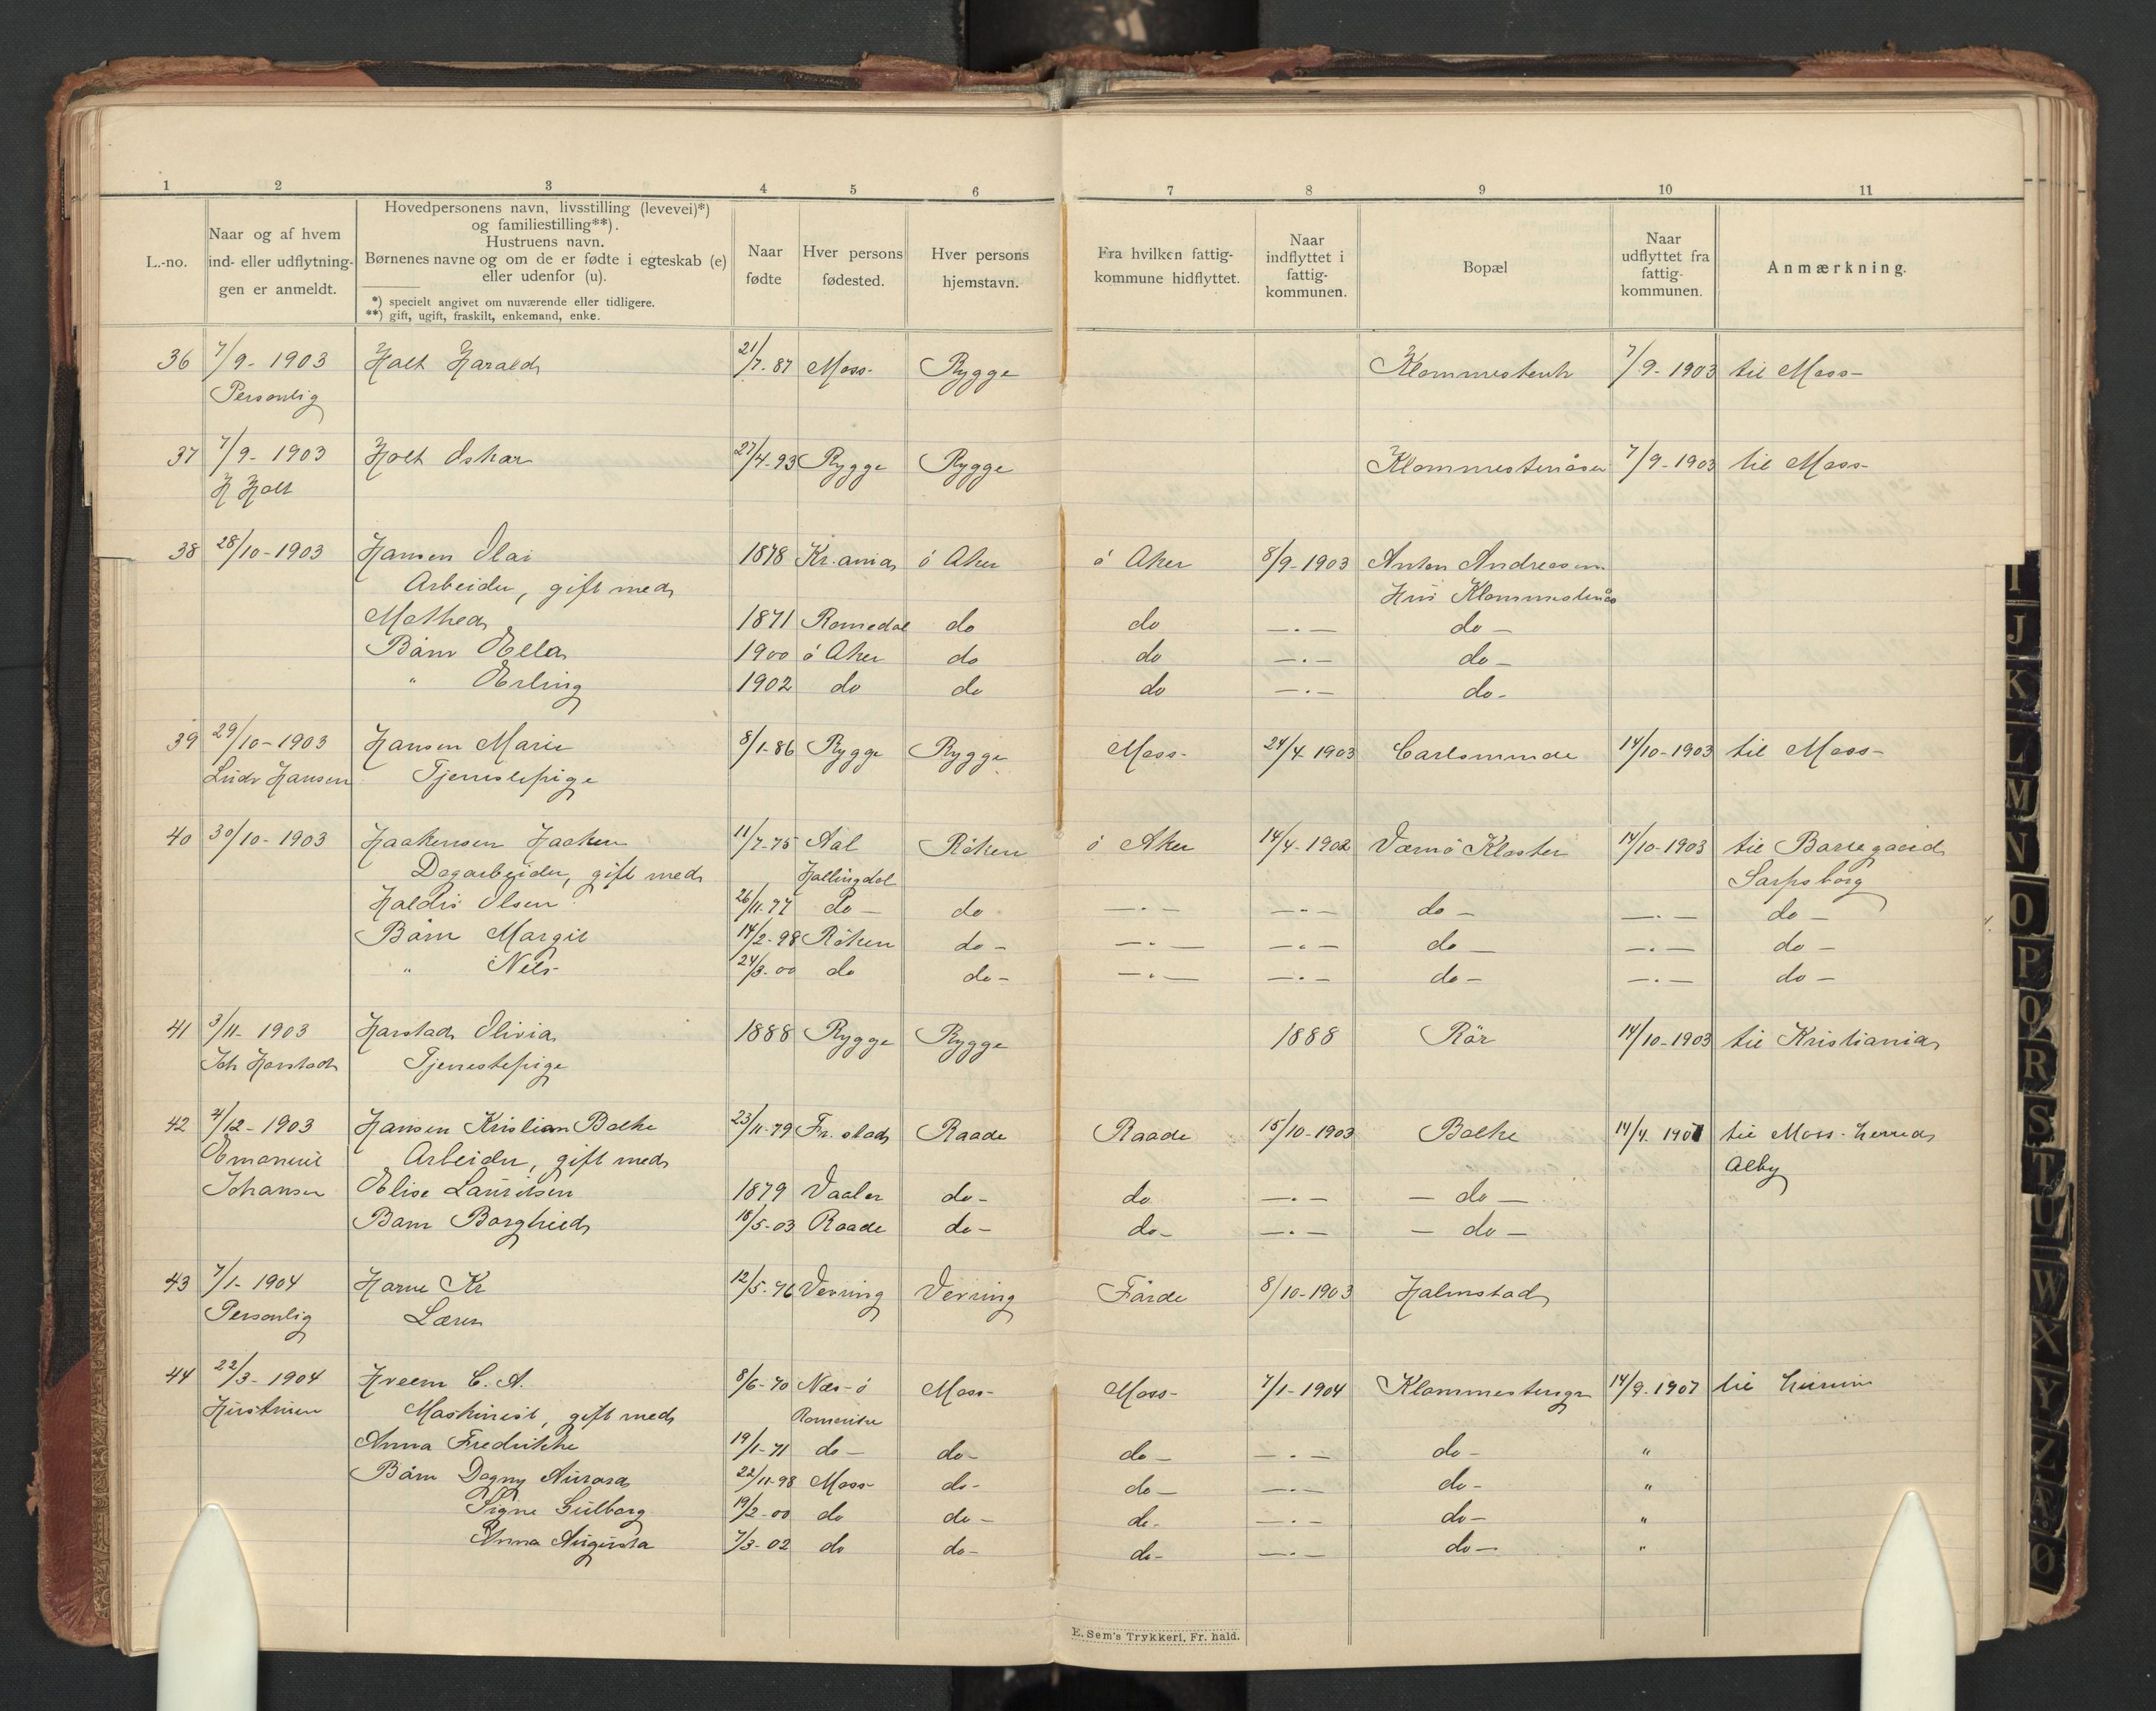 1 2 3 4 5 6 7 8 9 10 11
L.-no.
Naar og af hvem
ind- eller udflytnin-
gen er anmeldt.
Hovedpersonens navn, livsstilling (levevei)*)
og familiestilling**).
Hustruens navn.
Børnenes navne og om de er fødte i egteskab (e)
eller udenfor (u).
*) specielt angivet om nuværende eller tidligere.
**) gift, ugift, fraskilt, enkemand, enke.
Naar
fødte
Hver persons
fødested.
Hver persons
hjemstavn.
Fra hvilken fattig-
kommune hidflyttet.
Naar
indflyttet i
fattig-
kommunen.
Bopæl
Naar
udflyttet fra
fattig-
kommunen.
Anmærkning.
36 7/9- 1903 Holt Harald 21/7-87 Moss- Rygge 7/9-1903 til Moss-
Personlig
37 7/9- 1903 Holt Oskar 27/4-93 Rygge Rygge Klommestenåsen 7/9-1903 til Moss-
H Holt
38 28/10-1903 Hansen Olai 1878 Kr.ania ö Aker ö Aker 8/9-1903 Anton Andreasen
Arbeider, gift med Hus
Mathea 1871 Romedal do do —.— do —
Børn Ella 1900 ö Aker do do —.— do —
" Erling 1902 do do do —.— do-
39 29/10-1903 Hansen Marie 8/1-86 Rygge Rygge Moss- 24/4 1903 Carlsminde 14/10-1903 til Moss-
Ludv Hansen Tjenestepige
40 30/10-1903 Haakensen Haaken 11/7-75 Aal Röken ö Aker 14/4-1902 Værnö Kloster 14/10-1903 til Borregaard
Dagarbeider, gift med Hallingdal Sarpsborg
Haldis Olsen 26/11-77 do — do —.— —.— do — —.— do —
Børn Margit 14/2-98 Röken do- —.— —.— do — —.— do —
" Nils- 24/3-00 do do- —.— —.— do — —.— do —
41 3/11- 1903 Harstad Olivia 1888 Rygge Rygge 1888 Rör 14/10-1903 til Kristiania
Joh Harstad Tjenestepige
42 4/12-1903 Hansen Kristian Bakke 23/11-79 Fr.stad Raade Raade 15/10-1903 Bakke 14/4 1907 til Moss herred
Emanuel Arbeider, gift med Alby
Johansen Elise Lauritsen 1879 Vaaler do- do —.— — do —
Barn Borghild 18/5-03 Raade do- do- —.— — do —
43 7/1-1904 Harve Kr 12/5-76 Verring Verring Förde 8/10-1903 Halmstad
Personlig Lærer
44 22/3-1904 Hveem C. A. 8/6-70 Næs-ö Moss- Moss- 7/1-1904 14/9-1907 til Hurum
Hustruen Maskinist, gift med Romerike
Anna Fredrikke 19/1-71 do- do- do- —.— do- "
Børn Dagny Aurora 22/11-98 Moss- do- do- —.— do- "
Signe Gulborg 19/2-00 do do- do- —.— do- "
Anna Augusta 7/3-02 do do- do- —.— do- "
E. Sem's Trykkeri, Fr. hald.
I
J
K
L
M
N
O
P
Q
R
S
T
U
W
X
Y
Z
Ø